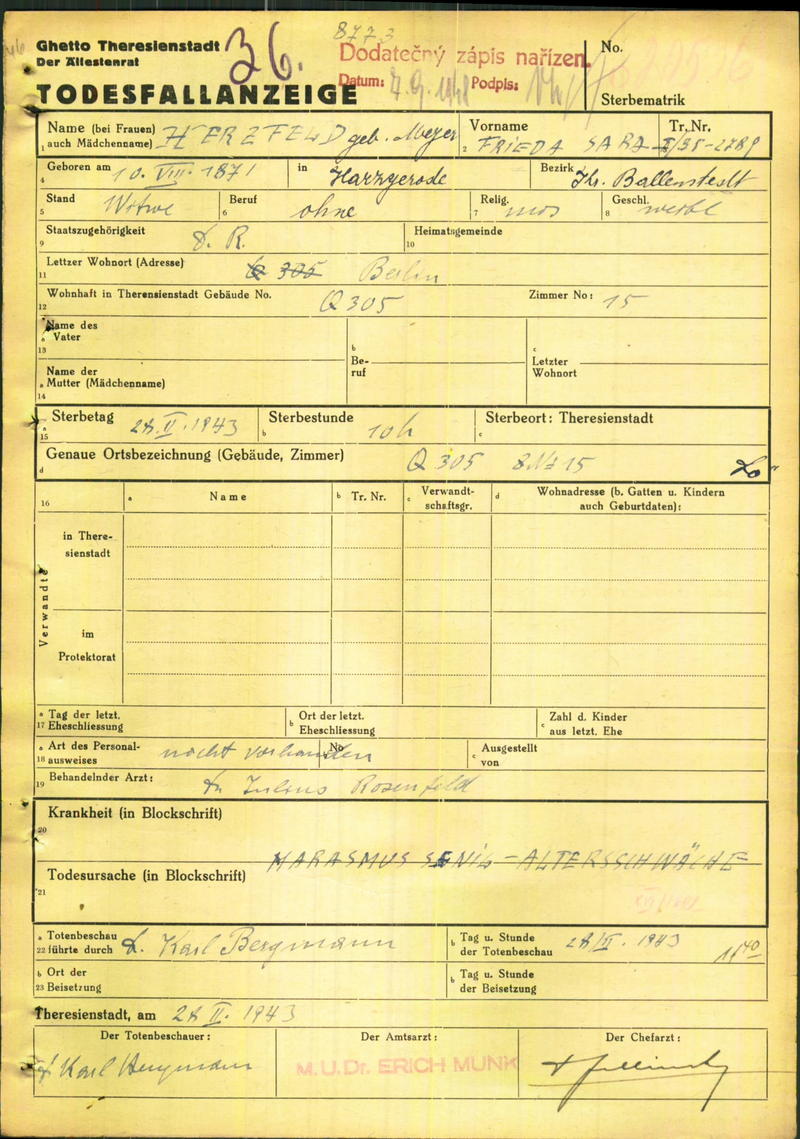 8773
Ghetto Theresienstadt
Der Ältestenrat
36.
Dodatečný zápis nařízen.
Datum: Podpis:
No.
TODESFALLANZEIGE
Sterbematrik
Name (bei Frauen) auch Mädchenname) HERZFELD geb. Meyer Vorname FRIEDA SARA Tr. Nr. I/35-2789
1 2
Geboren am 10. VIII. 1871 in Harzgerode Bezirk Ballenstedt
4
Stand Witwe Beruf ohne Relig. mos Geschl. weibl
5 6 7 8
Staatszugehörigkeit D. R. Heimatsgemeinde
9 10
Letzter Wohnort (Adresse) Q 305 Berlin
11
Wohnhaft in Theresienstadt Gebäude No. Q 305 Zimmer No: 15
12
Name des Vater
13
b Beruf
c Letzter Wohnort
Name der
a Mutter (Mädchenname)
14
Sterbetag 28. II. 1943 Sterbestunde 10 h Sterbeort: Theresienstadt
a 15 b c
Genaue Ortsbezeichnung (Gebäude, Zimmer) Q 305 15
d
16 a Name b Tr. Nr. c Verwandtschaftsgr. d Wohnadresse (b. Gatten u. Kindern auch Geburtdaten):
Verwandte
in Theresienstadt
im Protektorat
a Tag der letzt. b Ort der letzt. c Zahl d. Kinder
17 Eheschliessung Eheschliessung aus letzt. Ehe
a Art des Personal- nicht vorhanden No c Ausgestellt
18 ausweises von
19 Behandelnder Arzt: Dr Julius Rosenfeld
Krankheit (in Blockschrift)
20
MARASMUS SENIL - ALTERSSCHWÄCHE
Todesursache (in Blockschrift)
21
a Totenbeschau Dr. Karl Bergmann b Tag u. Stunde 28/II. 1943 11 40
22 führte durch der Totenbeschau
b Ort der b Tag u. Stunde
23 Beisetzung der Beisetzung
Theresienstadt, am 28 II. 1943
Der Totenbeschauer: Der Amtsarzt: Der Chefarzt:
Dr Karl Bergmann M.U.Dr. ERICH MUNK